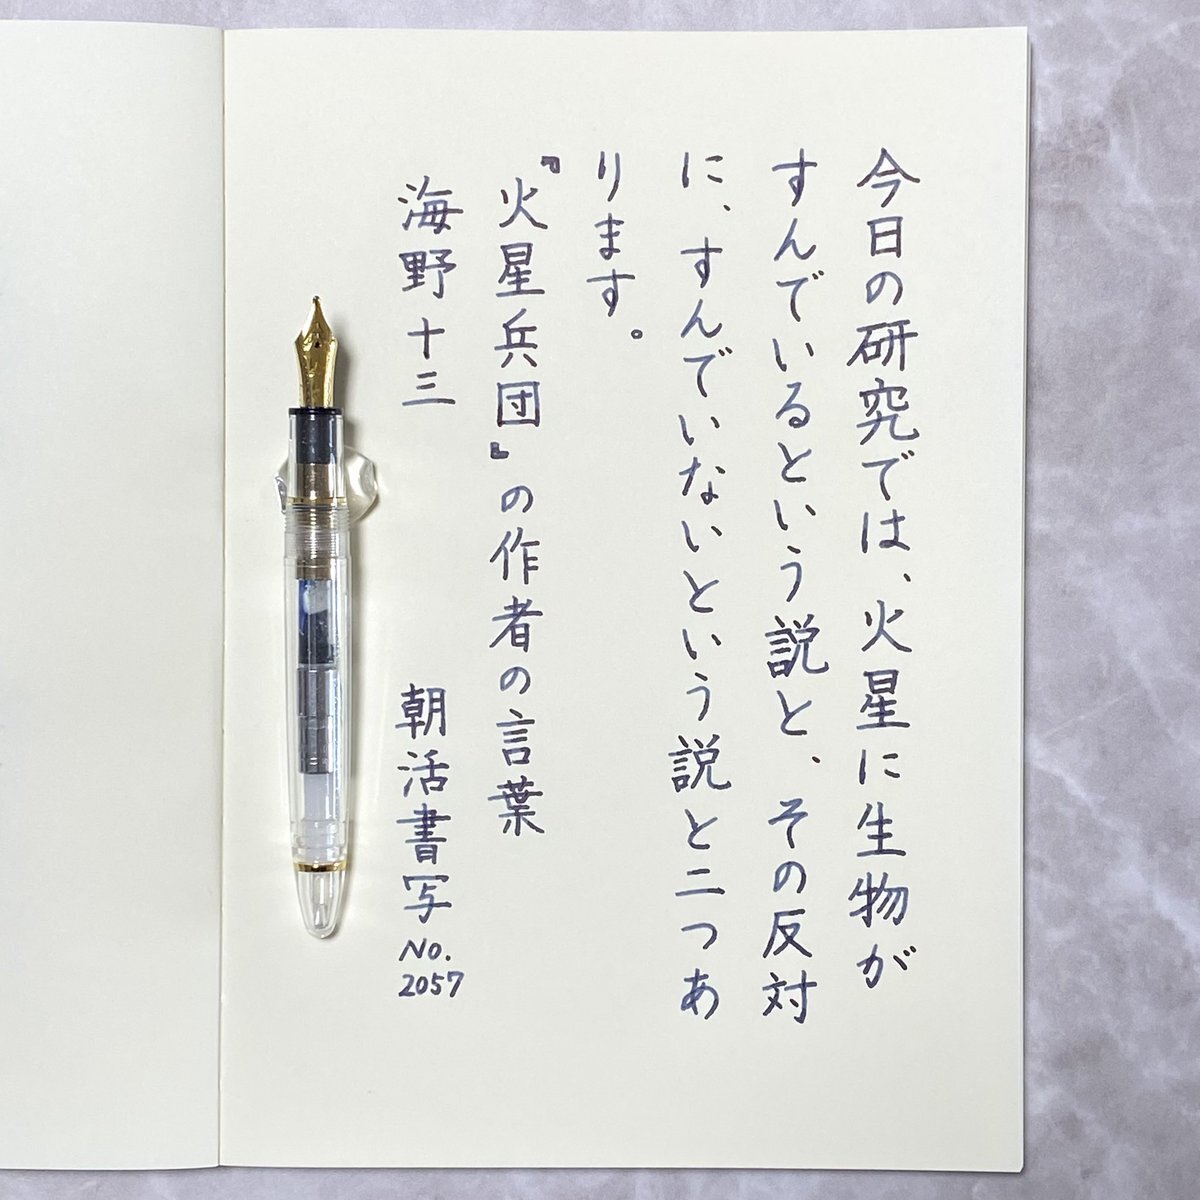 今日の研究では、火星に生物が
すんでいるという説と、その反対
に、すんでいないという説と二つあ
ります。
『火星兵団』の作者の言葉
海野十三
朝活書写
No.
2057